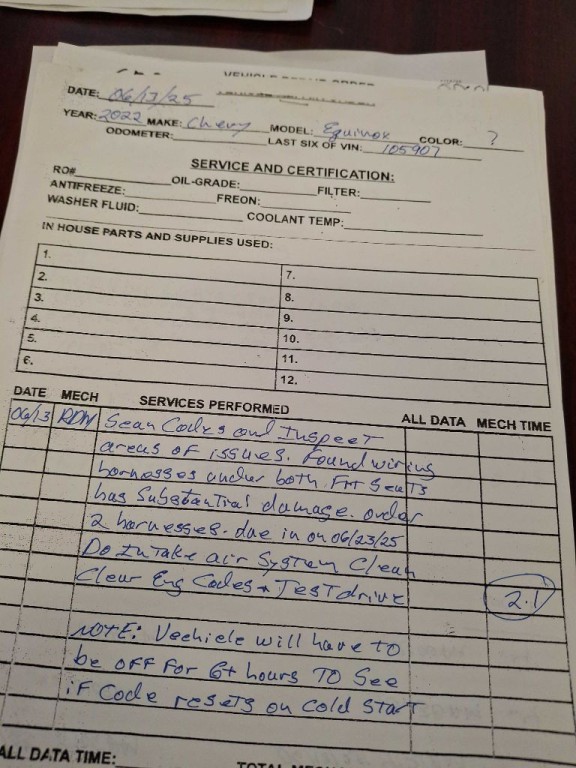 VEHICLE REPAIR ORDER
DATE: 06/13/25
YEAR: 2022 MAKE: Chevy MODEL: Equinox COLOR: ?
ODOMETER: LAST SIX OF VIN: 105907
SERVICE AND CERTIFICATION:
RO# OIL-GRADE: FILTER:
ANTIFREEZE: FREON:
WASHER FLUID: COOLANT TEMP:
IN HOUSE PARTS AND SUPPLIES USED:
1. 7.
2. 8.
3. 9.
4. 10.
5. 11.
6. 12.
DATE MECH SERVICES PERFORMED ALL DATA MECH TIME
06/13 RDM Scan Codes and Inspect
areas of issues. Found wiring
harnesses under both FRT Seats
has Substantial damage. order
2 harnesses. due in on 06/23/25
Do Intake air System Clean
Clear Eng Codes & Test drive 2.1
NOTE: Vechicle will have to
be off For 6+ hours To See
if Code resets on Cold Start
ALL DATA TIME: